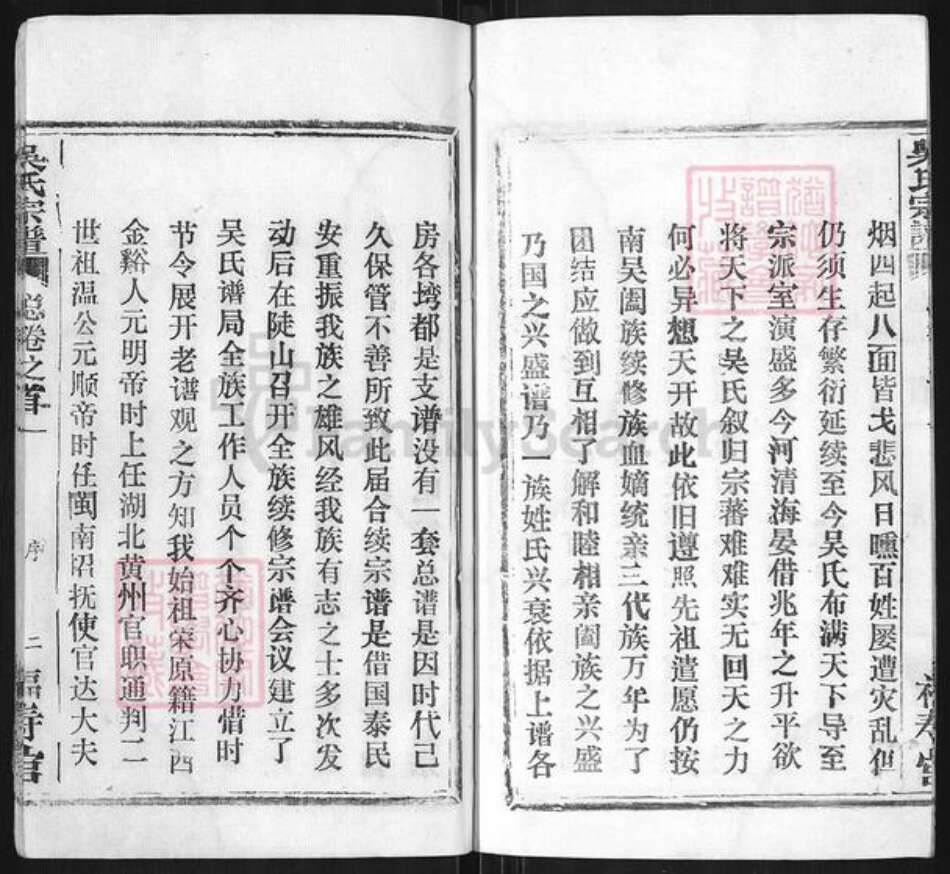 吴氏宗譜
烟四起八面皆戈悲风日曛百姓屡遭灾乱但
仍须生存繁衍延续至今吴氏布满天下导至
宗派室演盛多今河清海晏借兆年之升平欲
将天下之吴氏叙归宗蕃难难实无回天之力
何必异想天开故此依旧遵照先祖遣愿仍按
南吴阖族续修族血嫡统亲三代族万年为了
团结应做到互相了解和睦相亲阖族之兴盛
乃国之兴盛谱乃一族姓氏兴衰依据上谱各
房各塆都是支谱没有一套总谱是因时代已
久保管不善所致此届合续宗谱是借国泰民
安重振我族之雄风经我族有志之士多次发
动后在陡山召开全族续修宗谱会议建立了
吴氏谱局全族工作人员个个齐心协力惜时
节令展开老谱观之方知我始祖荣原籍江西
金谿人元明帝时上任湖北黄州官职通判二
世祖温公元顺帝时任闽南招抚使官达大夫
吳氏宗譜
总卷之首一
序
二
福寿官
FamilySearch